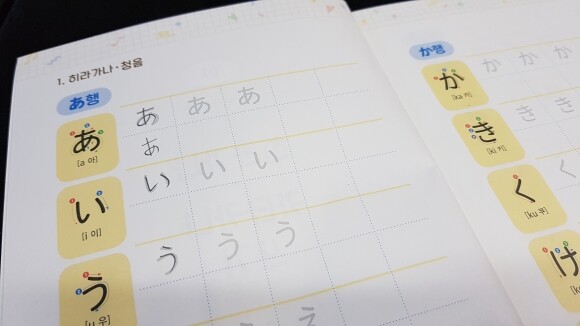 1. 히라가나·청음
あ행
あ あ あ あ
[a 아]
あ
い い い い
[i 이]
う う う う
[u 우]
え
か행
か か か か
[ka 카]
き き き
[ki 키]
く く
[ku 쿠]
け